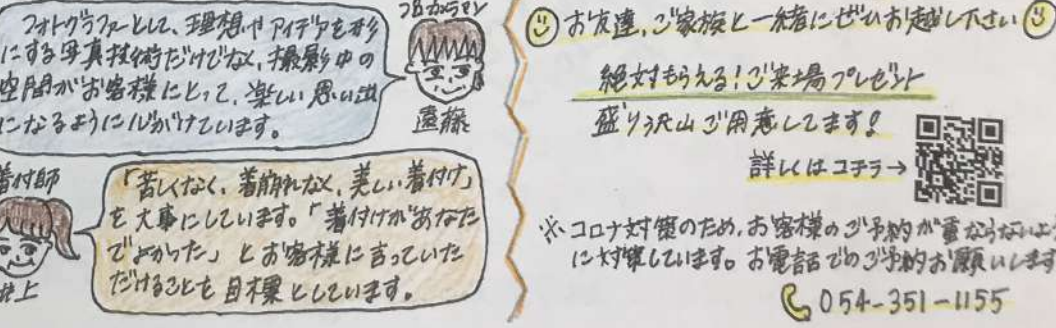 プロカメラマン
遠藤
フォトグラファーとして、理想やアイデアを形
にする写真技術だけでなく、撮影中の
空間がお客様にとって、楽しい思い出
になるように心がけています。
着付師
井上
「苦しくなく、着崩れなく、美しい着付け」
を大事にしています。「着付けがあなた
でよかった」とお客様に言っていた
だけることを目標としています。
お友達、ご家族と一緒にぜひお越し下さい
絶対もらえる!ご来場プレゼント
盛り沢山ご用意してます!
詳しくはコチラ→
※コロナ対策のため、お客様のご予約が重ならないよう
に対策しています。お電話でのご予約お願いします
054-351-1155